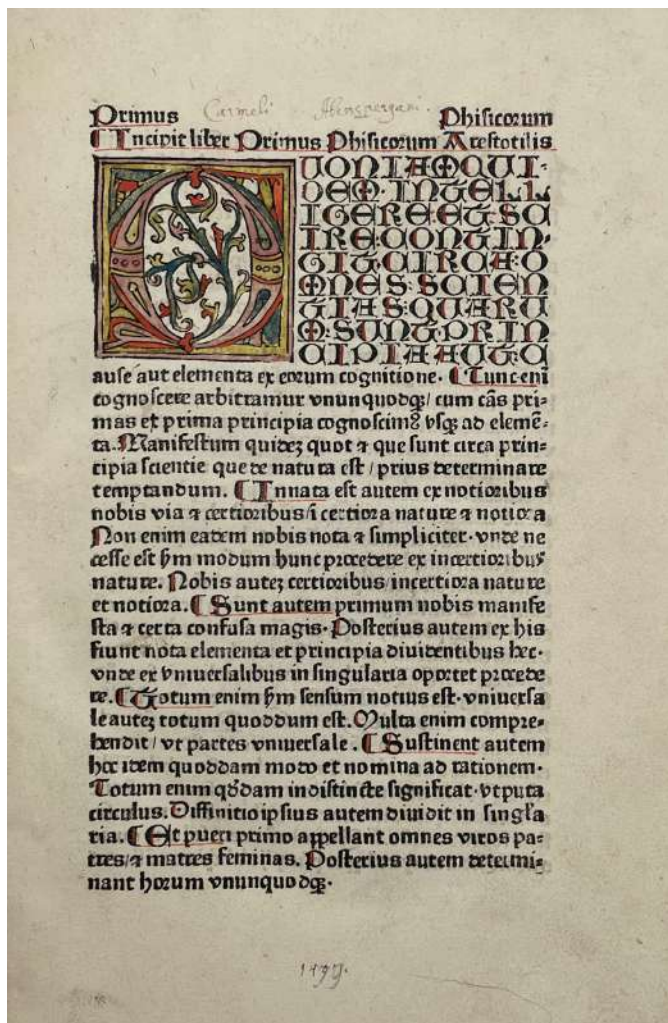 Primus Carmeli Abenspergani. Phisicorum
¶ Incipit liber Primus Phisicorum Arestotilis
QUONIAM QUI-
DEM · INTELL
IGERE · ET · SC
IRE · CONTIN-
GIT · CIRCA · O
MNES · SCIEN
TIAS · QUARU
M · SUNT · PRIN
CIPIA · AUT · C
ause aut elementa ex eorum cognitione. ¶ Tunc eni
cognoscere arbitramur vnunquodqꝫ/ cum cãs pri=
mas et prima principia cognoscimꝰ vsqꝫ ad elemẽ=
ta. Manifestum quideꝫ quot ⁊ que sunt circa prin=
cipia scientie que de natura est / prius determinare
temptandum. ¶ Innata est autem ex notioribus
nobis via ⁊ certioribus/ ĩ certiora nature ⁊ notiora
Non enim eadem nobis nota ⁊ simpliciter. vnde ne
cesse est ẜm modum hunc procedere ex incertioribuꝰ
nature. Nobis auteꝫ certioribus/ incertiora nature
et notiora. ¶ Sunt autem primum nobis manife
sta ⁊ certa confusa magis. Posterius autem ex his
fiunt nota elementa et principia diuidentibus hec.
vnde ex vniuersalibus in singularia oportet procede
re. ¶ Totum enim ẜm sensum notius est. vniuersa
le auteꝫ totum quoddum est. Multa enim compre=
hendit / vt partes vniuersale. ¶ Sustinent autem
hoc idem quoddam modo et nomina ad rationem.
Totum enim qďdam indistincte significat. vt puta
circulus. Diffinitio ipsius autem diuidit in singĩa
ria. ¶ Et pueri primo appellant omnes viros pa=
tres/ ⁊ matres feminas. Posterius autem determi=
nant horum vnunquodqꝫ.